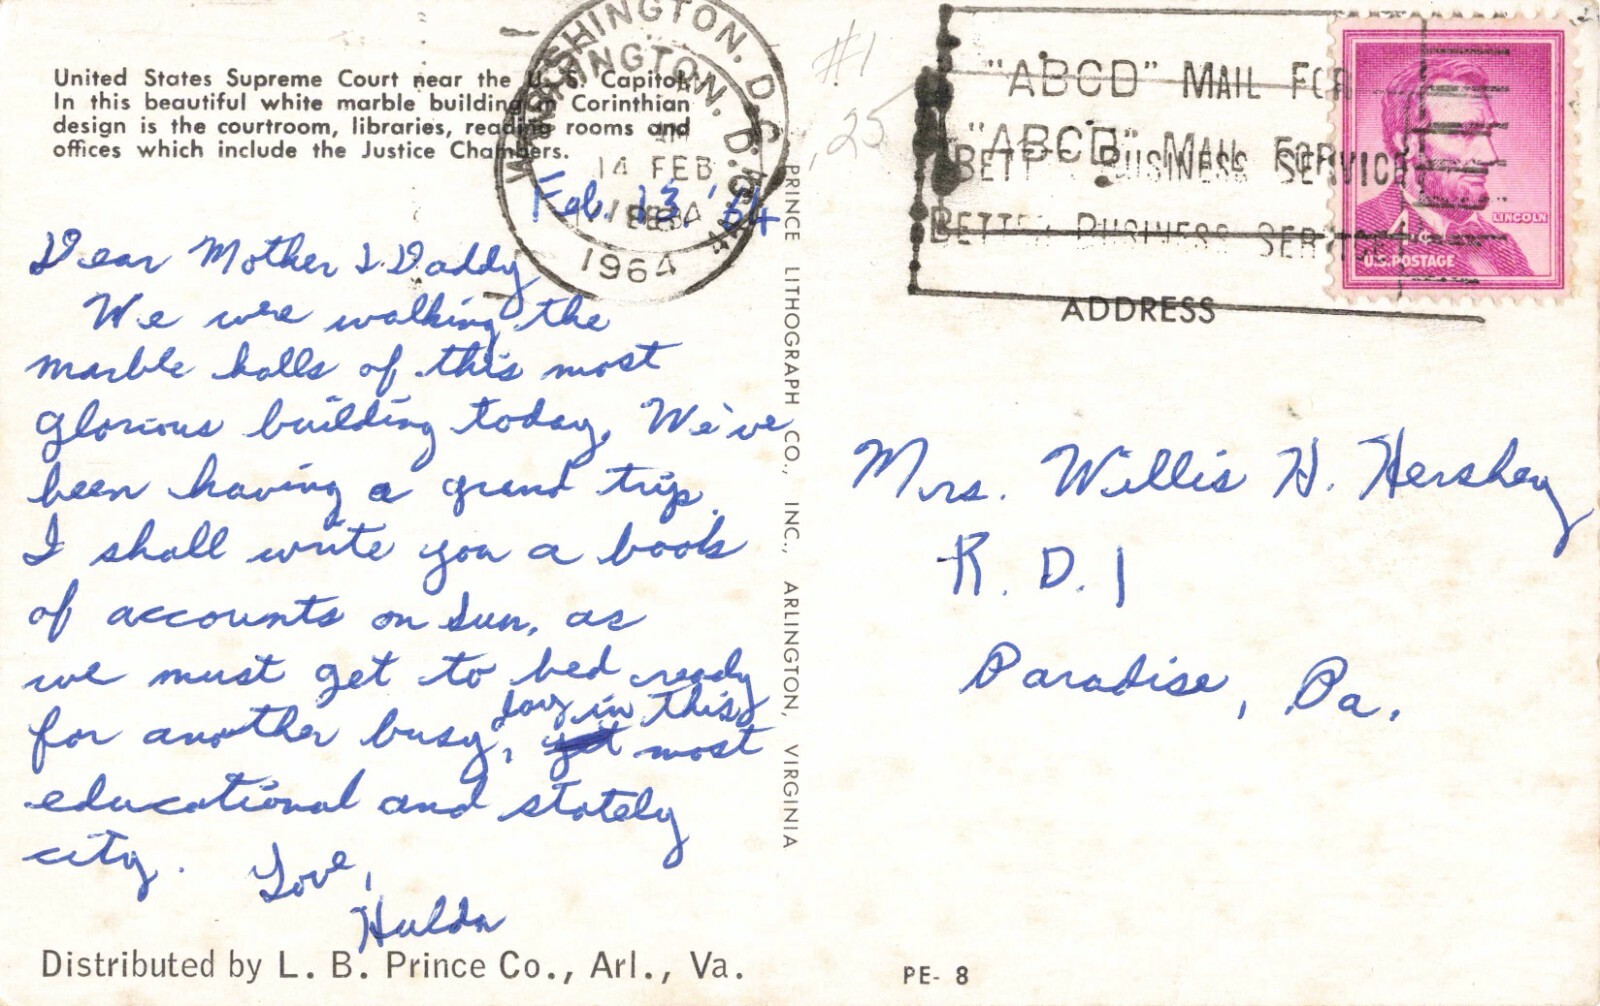 United States Supreme Court near the U. S. Capitol.
In this beautiful white marble building in Corinthian
design is the courtroom, libraries, reading rooms and
offices which include the Justice Chambers.
WASHINGTON, D.C.
14 FEB
1964
#1
.25
"ABCD" MAIL FOR
"ABCD" MAIL FOR
BETTER BUSINESS SERVICE
BETTER BUSINESS SERVICE
4¢
LINCOLN
U.S. POSTAGE
Feb. 13 '64
Dear Mother & Daddy
We were walking the
marble halls of this most
glorious building today. We've
been having a grand trip.
I shall write you a book
of accounts on Sun. as
we must get to bed ready
for another busy, day in this
most
educational and stately
city. Love,
Hulda
Distributed by L. B. Prince Co., Arl., Va.
PRINCE LITHOGRAPH CO., INC., ARLINGTON, VIRGINIA
ADDRESS
Mrs. Willis H. Hershey
R. D. 1
Paradise, Pa.
PE- 8